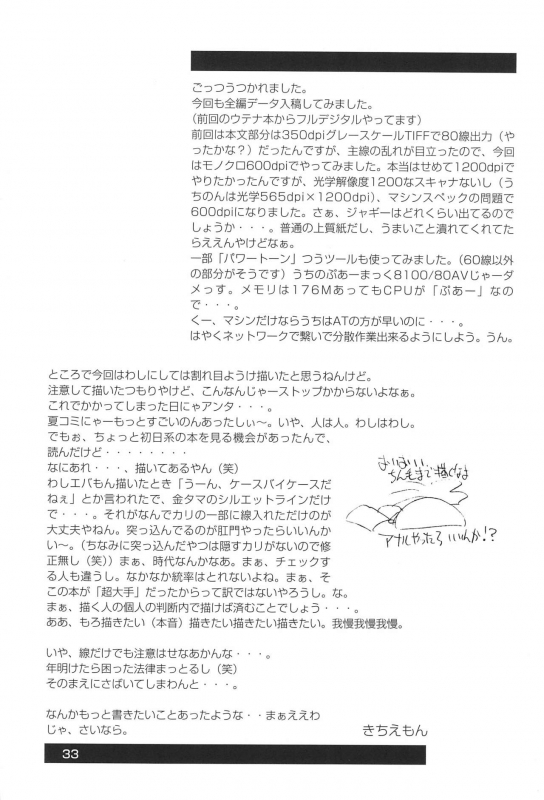 ごっつうつかれました。
今回も全編データ入稿してみました。
(前回のウテナ本からフルデジタルやってます)
前回は本文部分は350dpiグレースケールTIFFで80線出力（や
ったかな？）だったんですが、主線の乱れが目立ったので、今回
はモノクロ600dpiでやってみました。本当はせめて1200dpiで
やりたかったんですが、光学解像度1200なスキャナないし（う
ちのんは光学565dpi×1200dpi）、マシンスペックの問題で
600dpiになりました。さぁ、ジャギーはどれくらい出てるので
しょうか・・・。普通の上質紙だし、うまいこと潰れてくれてた
らええんやけどなぁ。
一部「パワートーン」つうツールも使ってみました。（60線以外
の部分がそうです）うちのぷあーまっく8100/80AVじゃーダ
メっす。メモリは176MあってもCPUが「ぷあー」なの
で・・・。
くー、マシンだけならうちはATの方が早いのに・・・。
はやくネットワークで繋いで分散作業出来るようにしよう。うん。
ところで今回はわしにしては割れ目ようけ描いたと思うねんけど。
注意して描いたつもりやけど、こんなんじゃーストップかからないよなぁ。
これでかかってしまった日にゃアンタ・・・。
夏コミにゃーもっとすごいのんあったしぃ〜。いや、人は人。わしはわし。
でもぉ、ちょっと初日系の本を見る機会があったんで、
読んだけど・・・・・・・・
なにあれ・・・、描いてあるやん（笑）
わしエバもん描いたとき「うーん、ケースバイケースだ
ねぇ」とか言われたで、金タマのシルエットラインだけ
で・・・。それがなんでカリの一部に線入れただけのが
大丈夫やねん。突っ込んでるのが肛門やったらいいんかい
い〜。（ちなみに突っ込んだやつは隠すカリがないので修
正無し（笑））まぁ、時代なんかなあ。まぁ、チェックす
る人も違うし。なかなか統率はとれないよね。まぁ、そ
この本が「超大手」だったからって訳ではないやろうし。な。
まぁ、描く人の個人の判断内で描けば済むことでしょう・・・。
ああ、もろ描きたい（本音）描きたい描きたい描きたい。我慢我慢我慢。
いや、線だけでも注意はせなあかんな・・・。
年明けたら困った法律まっとるし（笑）
そのまえにさばいてしまわんと・・・。
なんかもっと書きたいことあったような・・まぁええわ
じゃ、さいなら。
きちえもん
おいおい
ちん毛まで描くなよ
アナルやったらいいんか!?
33